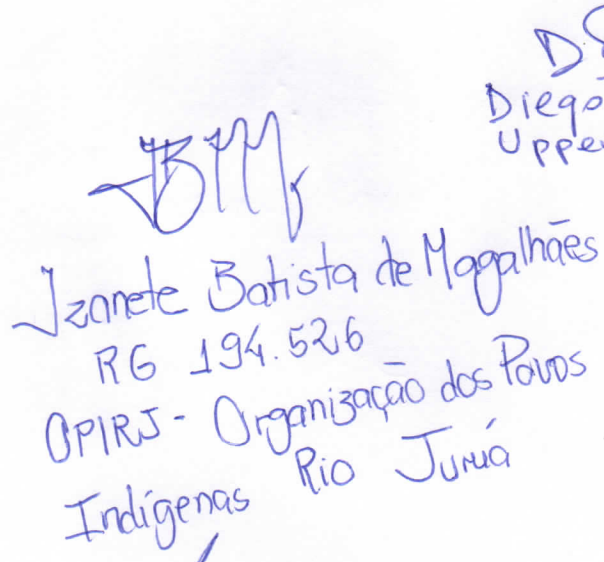 Diego
Uppe
JBM
Izanete Batista de Magalhães
RG 194.526
OPIRJ - Organização dos Povos
Indígenas Rio Juruá